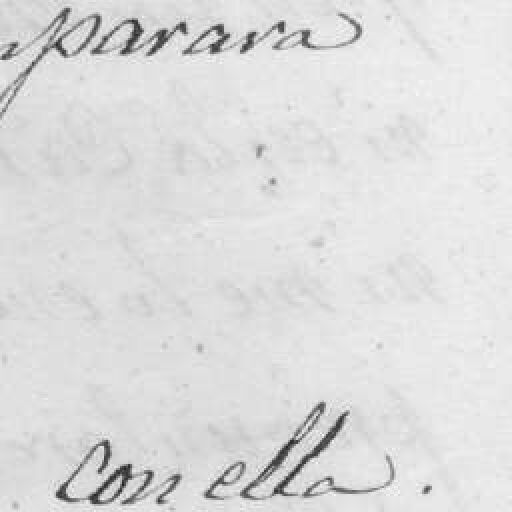 parara
con ella.